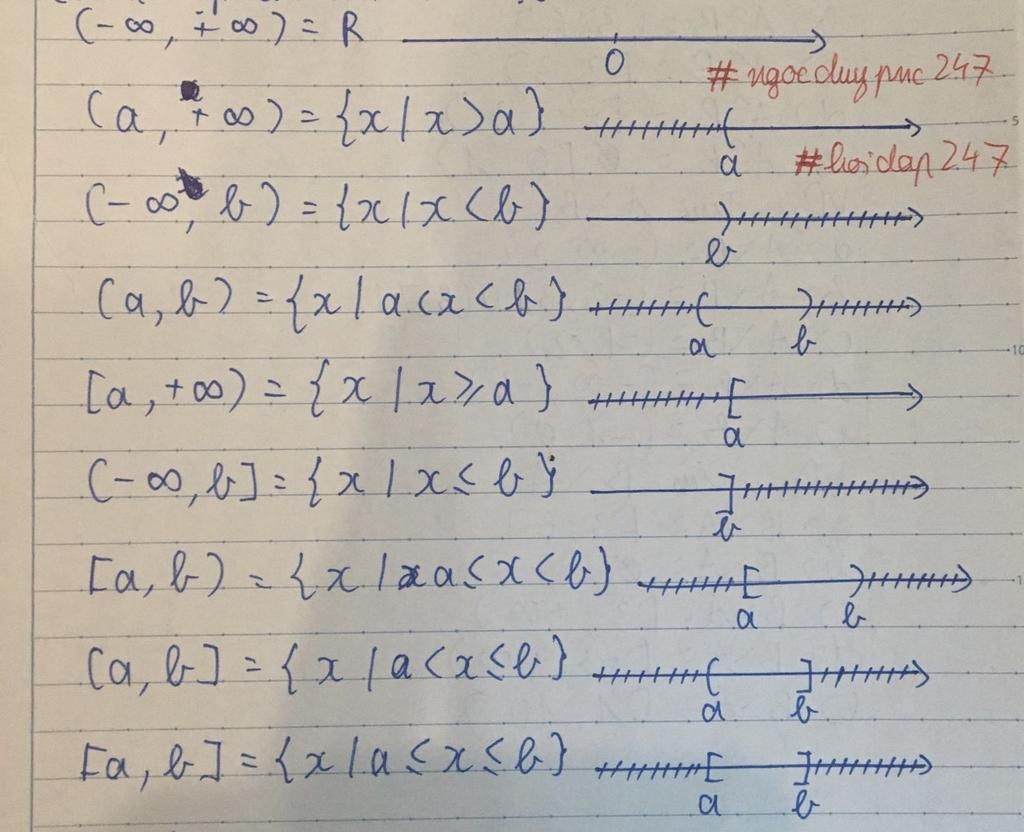 (-∞, +∞) = R
0
#ngocduypnc247
(a, +∞) = {x / x > a}
a
#hoidap247
(-∞, b) = {x / x < b}
b
(a, b) = {x / a < x < b}
a b
[a, +∞) = {x / x ≥ a}
a
(-∞, b] = {x / x ≤ b}
b
[a, b) = {x / a ≤ x < b}
a b
(a, b] = {x / a < x ≤ b}
a b
[a, b] = {x / a ≤ x ≤ b}
a b
5
10